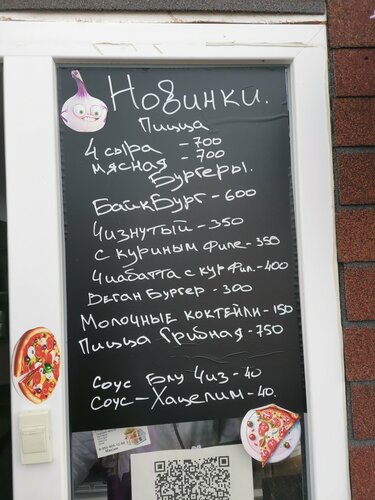 Новинки.
Пицца
4 сыра - 700
мясная - 700
Бургеры.
БайкБург - 600
Чизнутый - 350
с куриным филе - 350
Чиабатта с кур фил. - 400
Веган Бургер - 300
Молочные коктейли - 150
Пицца Грибная - 750
Соус Блу Чиз - 40
Соус - Хацелим - 40.